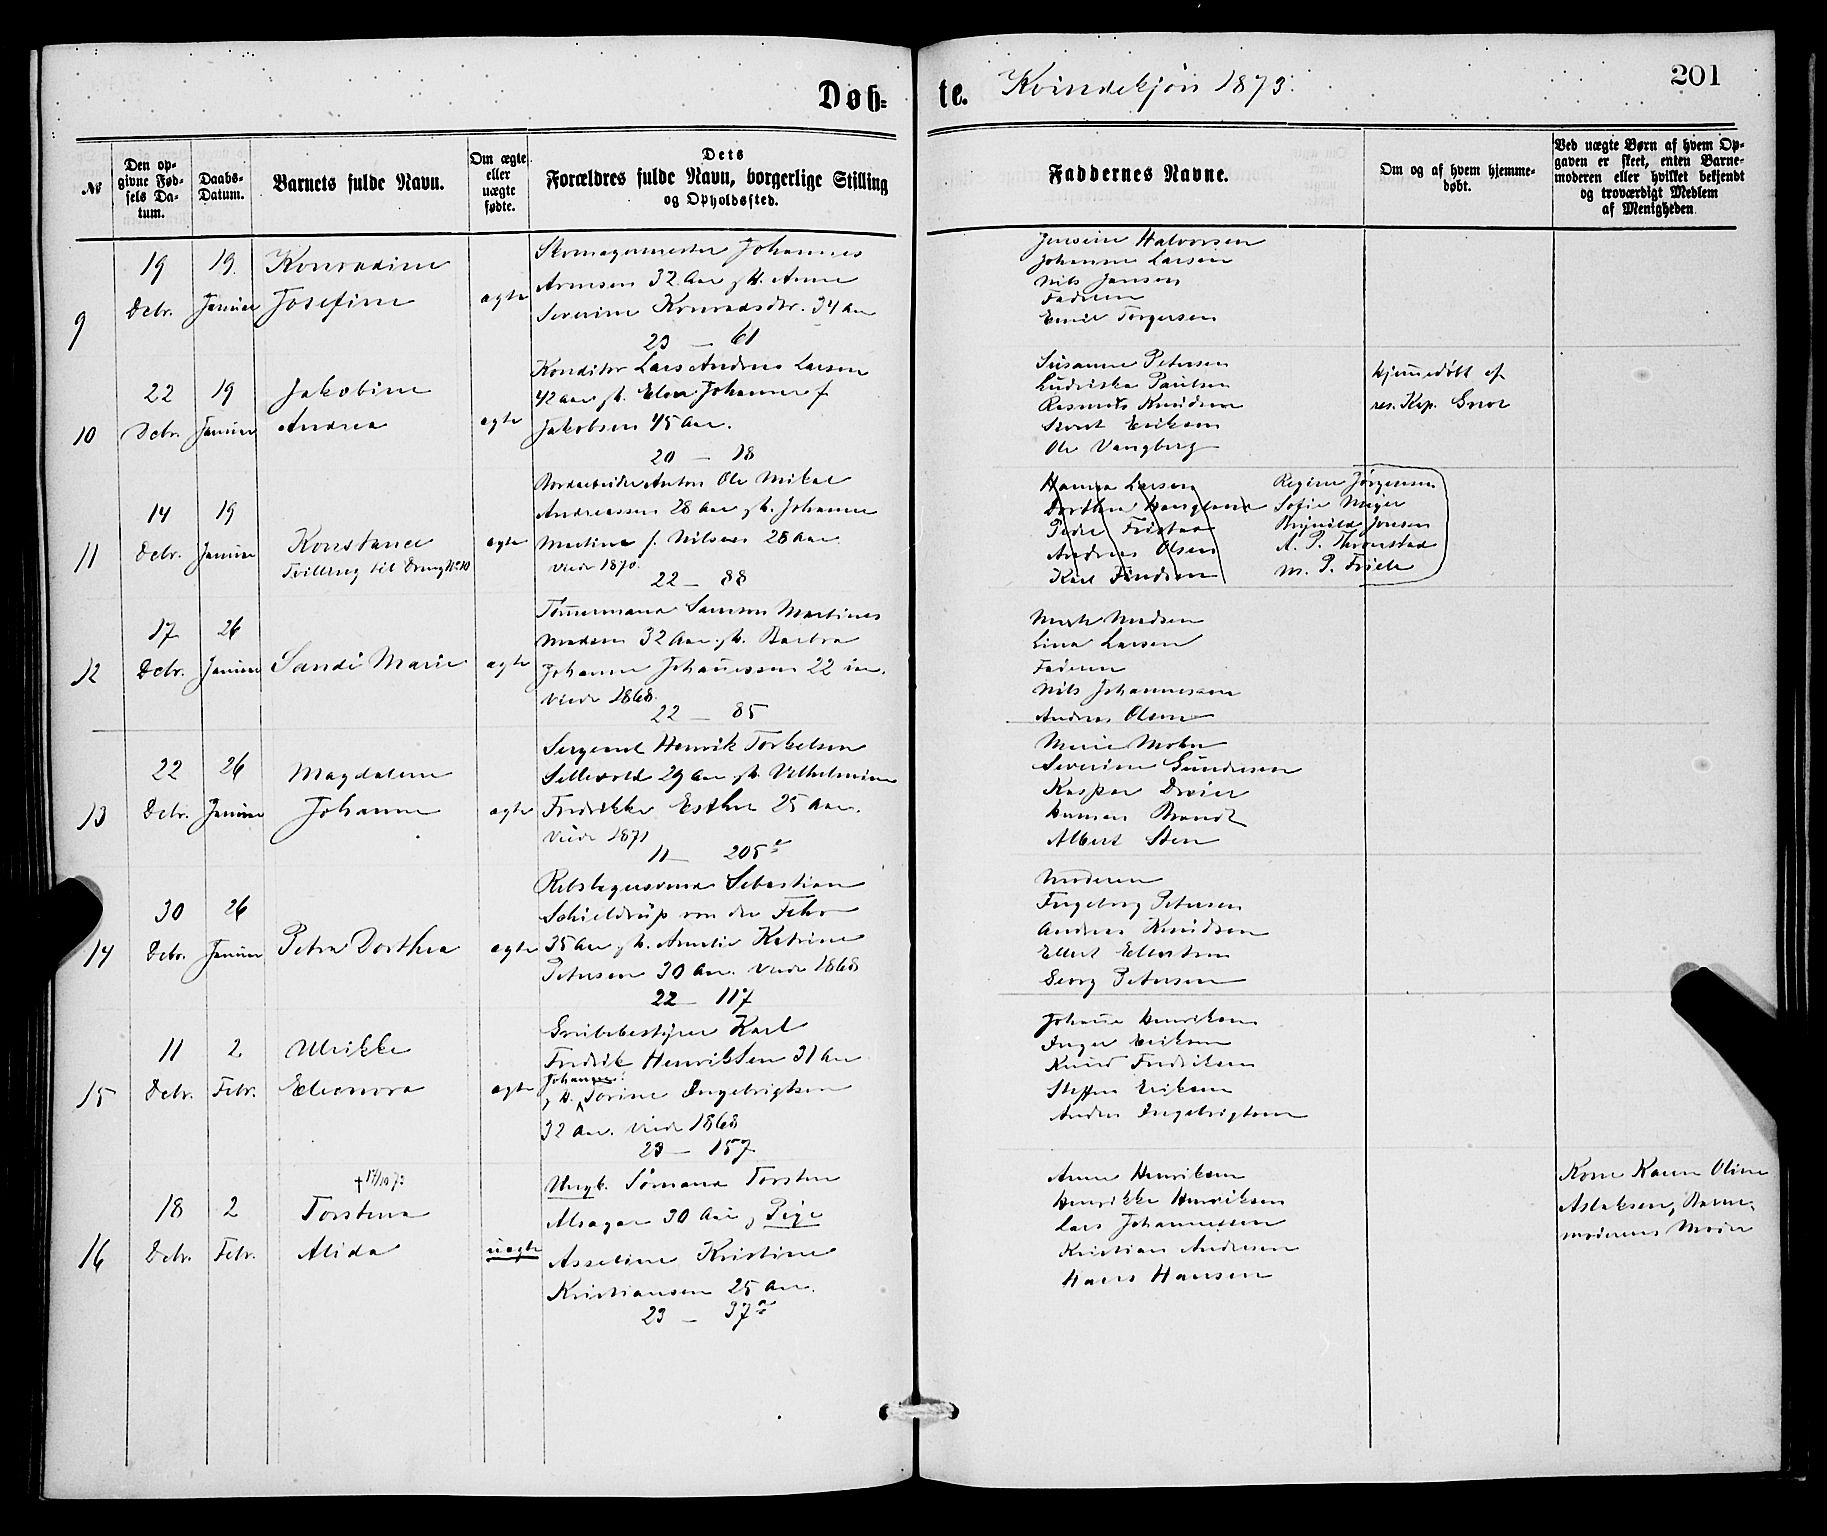 201
Døb= te. Kvindekjøn 1873.
№
Den op-
givne Fød-
sels Da-
tum.
Daabs-
Datum.
Barnets fulde Navn.
Om ægte
eller
uægte
fødte.
Dets
Forældres fulde Navn, borgerlige Stilling
og Opholdssted.
Faddernes Navne.
Om og af hvem hjemme-
døbt.
Ved uægte Børn af hvem Op-
gaven er skeet, enten Barne-
moderen eller hvilket bekjendt
og troværdigt Medlem
af Menigheden.
9
19
Debr.
19
Januar
Konradine
Josefine
ægte
Skomagermester Johannes
Arnesen 32 Aar g H. Anne
Severine Konradsdtr. 34 Aar
23 — 61
Jensine Halvorsen
Johanne Larsen
Nils Jansen
Faderen
Emil Torgersen
10
22
Debr.
19
Januar
Jakobine
Andrea
ægte
Konditor Lars Andreas Larsen
42 Aar g H. Elen Johanne f
Jakobsen 45 Aar.
20 — 18
Susanne Petersen
Ludvikka Paulsen
Rasmus Knudsen
Eriksen
Ole Vangberg
hjemmedøbt af
res. Kap.
11
14
Debr.
19
Januar
Konstance
Tvilling til Dreng No 10
ægte
Anton Ole Mikal
Andreassen 28 Aar g H. Johanne
Martine f. Nilsen 28 Aar
Viede 1870.
22 — 88
Hanna Larsen
Dorthea
Peder
Andreas Olsen
Karl
Regine Jørgensen
Sofie Meyer
Brynild Jensen
A. P. Thronstad
M. P. Friele
12
17
Debr.
26
Januar
Sandi Marie
ægte
Tømmermand Samson Martines
Madsen 32 Aar g H. Barbra
Johanne Johannessen 22 Aar.
Viede 1868.
22 — 85
Madsen
Lina Larsen
Faderen
Nils Johannesen
Andreas Olsen
13
22
Debr.
26
Januar
Magdalene
Johanne
ægte
Sergeant Henrik Torkelsen
Sellevold 29 Aar g H. Vilhelmine
Fredrikke Esther 25 Aar.
Viede 1871
11 — 205
Marie Mohn
Severine Gundersen
Kaspar Dreier
Brandt
Albert Sten
14
30
Debr.
26
Januar
Petra Dorthea
ægte
Rebslagersvend Sebastian
Schieldrup von der Fehr
35 Aar g H. Amalie Katrine
Petersen 30 Aar. Viede 1868
22 — 117
Moderen
Ingeborg Petersen
Andreas Knudsen
Ellert Ellertsen
Georg Petersen
15
11
Debr.
2
Febr.
Ulrikke
Eleonora
ægte
Karl
Fredrik Henriksen 31 Aar
Johanne
g H. Torine Ingebrigtsen
32 Aar. Viede 1868
23 — 157
Johanne Henriksen
Inger Eriksen
Knud Fredriksen
Steffen Eriksen
Anders Ingebrigtsen
16
18
Debr.
2
Febr.
† 17/10 73
Torstena
Alida
uægte
Ungk. Sømand Torsten
Alsager 30 Aar g Pige
Asseline Kristine
Kristiansen 25 Aar.
23 — 37
Anne Henriksen
Henrikke Henriksen
Lars Johannessen
Kristian Andersen
Hans Hansen
Kone Karen Oline
Aslaksen, Barne-
moderens Moder